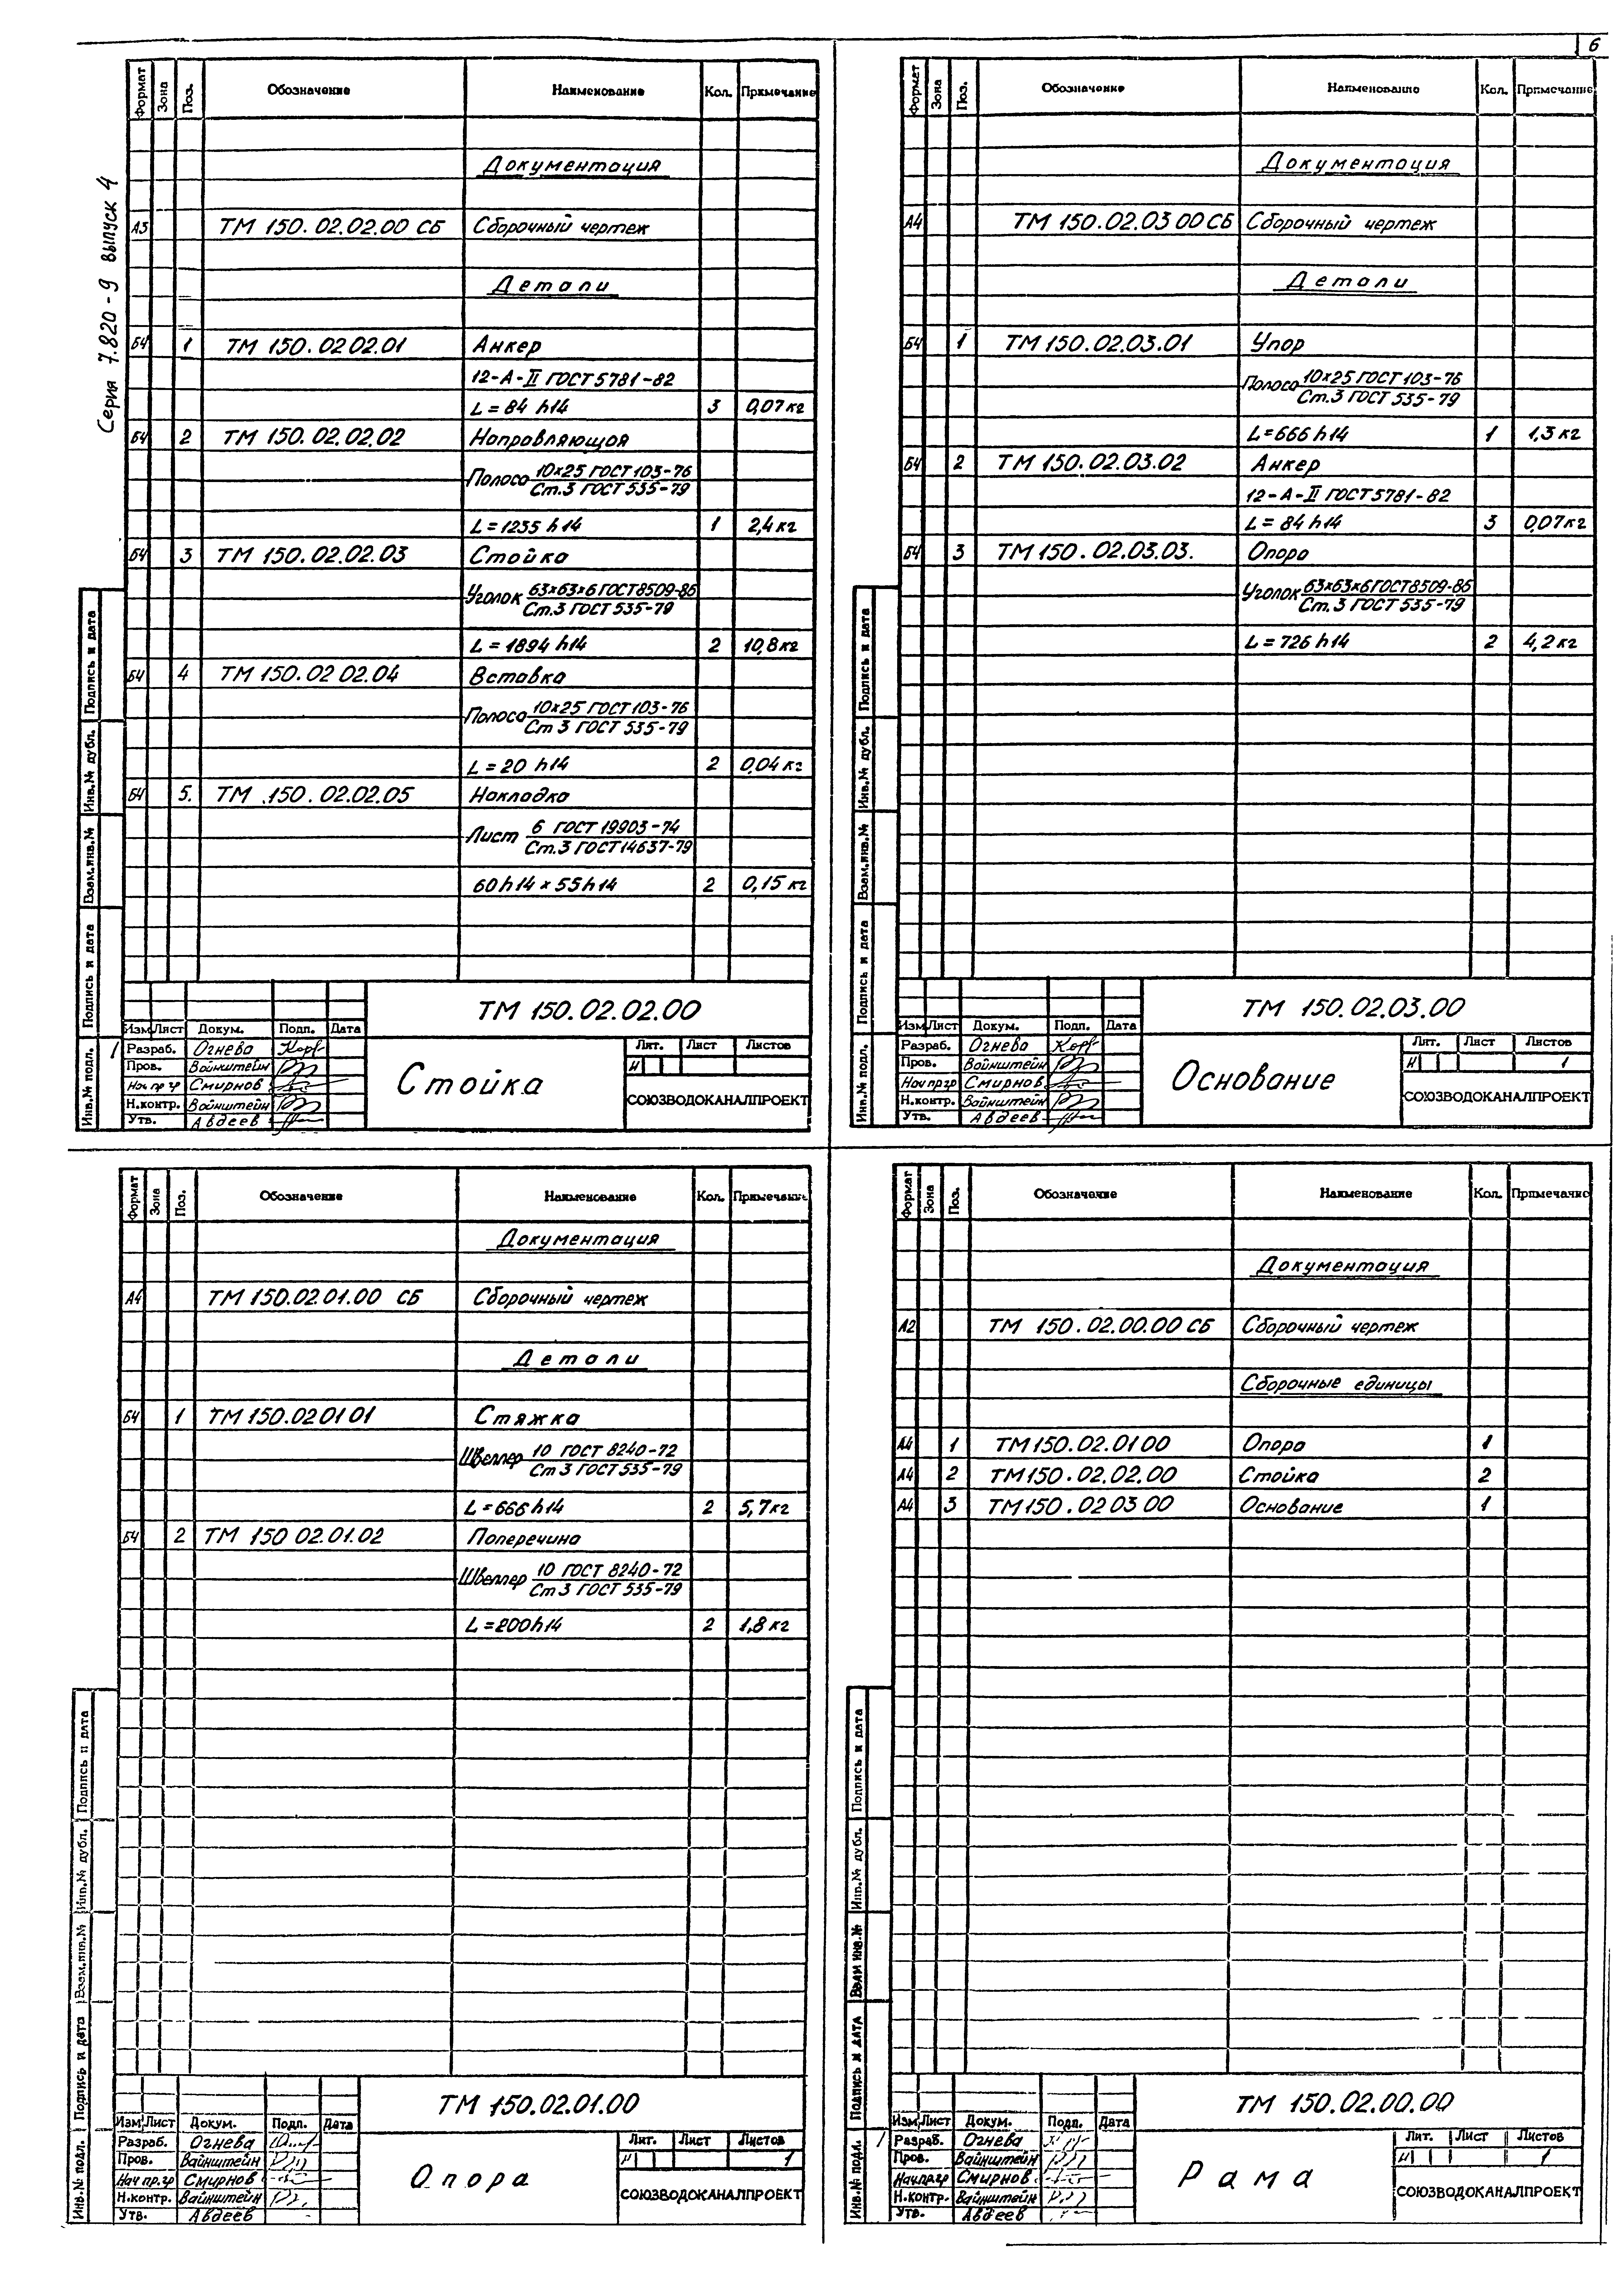 6
Серия 7.820-9 выпуск 4
Формат Зона Поз. Обозначение Наименование Кол. Примечание
Документация
А3 ТМ 150.02.02.00 СБ Сборочный чертеж
Детали
БЧ 1 ТМ 150.02 02.01 Анкер
12-А-II ГОСТ 5781-82
L=84 h14 3 0,07кг
БЧ 2 ТМ 150.02.02.02 Направляющая
Полоса 10х25 ГОСТ 103-76
Ст.3 ГОСТ 535-79
L=1235 h14 1 2,4кг
БЧ 3 ТМ 150.02.02.03 Стойка
Уголок 63х63х6 ГОСТ 8509-86
Ст.3 ГОСТ 535-79
L=1894 h14 2 10,8кг
БЧ 4 ТМ 150.02 02.04 Вставка
Полоса 10х25 ГОСТ 103-76
Ст 3 ГОСТ 535-79
L=20 h14 2 0,04кг
БЧ 5. ТМ 150.02.02.05 Накладка
Лист 6 ГОСТ 19903-74
Ст.3 ГОСТ 14637-79
60h14 х 55h14 2 0,15 кг
ТМ 150.02.02.00
Изм Лист Докум. Подп. Дата
Разраб. Огнева
Пров. Вайнштейн
Нач пр гр Смирнов
Н.контр. Вайнштейн
Утв. Авдеев
Стойка
Лит. Лист Листов
И
СОЮЗВОДОКАНАЛПРОЕКТ
Инв.№ подл. Подпись и дата Взам.инв.№ Инв.№ дубл. Подпись и дата
Формат Зона Поз. Обозначение Наименование Кол. Примечание
Документация
А4 ТМ 150.02.03 00 СБ Сборочный чертеж
Детали
БЧ 1 ТМ 150.02.03.01 Упор
Полоса 10х25 ГОСТ 103-76
Ст.3 ГОСТ 535-79
L=666 h14 1 1,3 кг
БЧ 2 ТМ 150.02.03.02 Анкер
12-А-II ГОСТ 5781-82
L=84 h14 3 0,07кг
БЧ 3 ТМ 150.02.03.03. Опора
Уголок 63х63х6 ГОСТ 8509-86
Ст.3 ГОСТ 535-79
L=726 h14 2 4,2 кг
ТМ 150.02.03.00
Изм Лист Докум. Подп. Дата
Разраб. Огнева
Пров. Вайнштейн
Нач пр гр Смирнов
Н.контр. Вайнштейн
Утв. Авдеев
Основание
Лит. Лист Листов
И 1
СОЮЗВОДОКАНАЛПРОЕКТ
Инв.№ подл. Подпись и дата Взам.инв.№ Инв.№ дубл. Подпись и дата
Формат Зона Поз. Обозначение Наименование Кол. Примечание
Документация
А4 ТМ 150.02.01.00 СБ Сборочный чертеж
Детали
БЧ 1 ТМ 150.02 01 01 Стяжка
Швеллер 10 ГОСТ 8240-72
Ст 3 ГОСТ 535-79
L=666 h14 2 5,7кг
БЧ 2 ТМ 150 02.01.02 Поперечина
Швеллер 10 ГОСТ 8240-72
Ст 3 ГОСТ 535-79
L=200h14 2 1,8 кг
ТМ 150.02.01.00
Изм Лист Докум. Подп. Дата
Разраб. Огнева
Пров. Вайнштейн
Нач пр.гр Смирнов
Н.контр. Вайнштейн
Утв. Авдеев
Опора
Лит. Лист Листов
И 1
СОЮЗВОДОКАНАЛПРОЕКТ
Инв.№ подл. Подпись и дата Взам.инв.№ Инв.№ дубл. Подпись и дата
Формат Зона Поз. Обозначение Наименование Кол. Примечание
Документация
А2 ТМ 150.02.00.00 СБ Сборочный чертеж
Сборочные единицы
А4 1 ТМ 150.02.01 00 Опора 1
А4 2 ТМ 150.02.02.00 Стойка 2
А4 3 ТМ 150.02 03 00 Основание 1
ТМ 150.02.00.00
Изм Лист Докум. Подп. Дата
Разраб. Огнева
Пров. Вайнштейн
Нач.пр.гр Смирнов
Н.контр. Вайнштейн
Утв. Авдеев
Рама
Лит. Лист Листов
И 1
СОЮЗВОДОКАНАЛПРОЕКТ
Инв.№ подл. Подпись и дата Взам инв.№ Инв.№ дубл. Подпись и дата